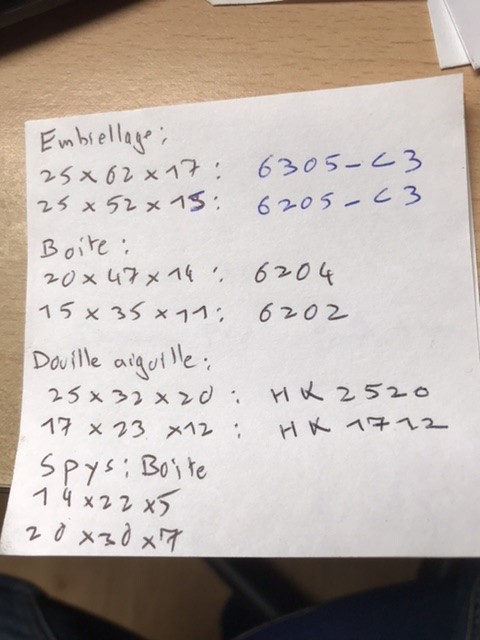 Embiellage:
25x62x17: 6305-C3
25x52x15: 6205-C3
Boite:
20x47x14: 6204
15x35x11: 6202
Douille aiguille:
25x32x20: HK 2520
17x23x12: HK 1712
Spys: Boite
14x22x5
20x30x7